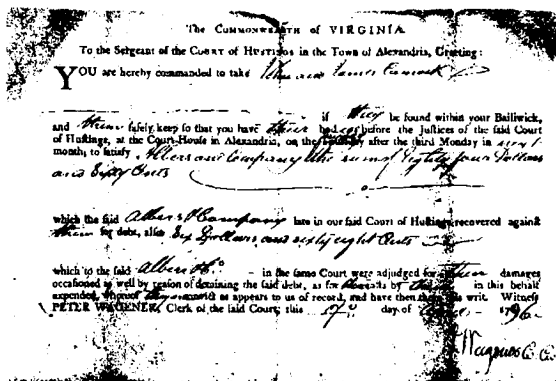 The COMMONWEALTH of VIRGINIA
To the Sergeant of the COURT of HUSTINGS in the Town of Alexandria, Greeting:
YOU are hereby commanded to take John and James
if they be found within your Bailiwick,
and them safely keep so that you have their bodies before the Justices of the said Court
of Hustings, at the Court-House in Alexandria, on the day after the third Monday in next
month; to satisfy Albers and Company the sum of Eighty four Dollars
and Sixty Cents
which the said Albers & Company late in our said Court of Hustings recovered against
them for debt, also Six Dollars and sixty eight Cents
which to the said Albers & Co. - in the same Court were adjudged for their damages
occasioned as well by reason of detaining the said debt, as for by in this behalf
expended, whereof as appears to us of record, and have then there this writ. Witness
PETER WAGENER, Clerk of the said Court, this day of 1796.
P Wagener C. C.